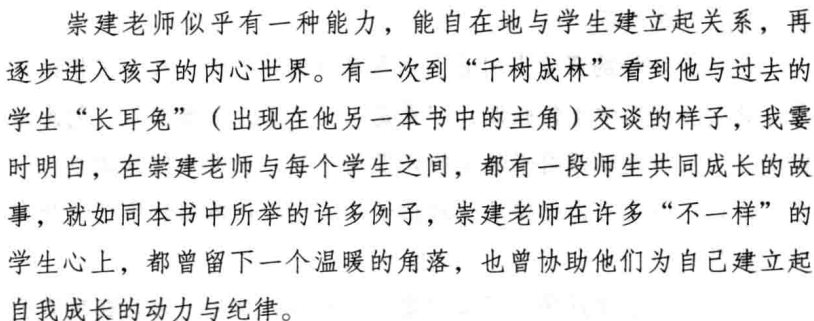 崇建老师似乎有一种能力，能自在地与学生建立起关系，再
逐步进入孩子的内心世界。有一次到“千树成林”看到他与过去的
学生“长耳兔”（出现在他另一本书中的主角）交谈的样子，我霎
时明白，在崇建老师与每个学生之间，都有一段师生共同成长的故
事，就如同本书中所举的许多例子，崇建老师在许多“不一样”的
学生心上，都曾留下一个温暖的角落，也曾协助他们为自己建立起
自我成长的动力与纪律。